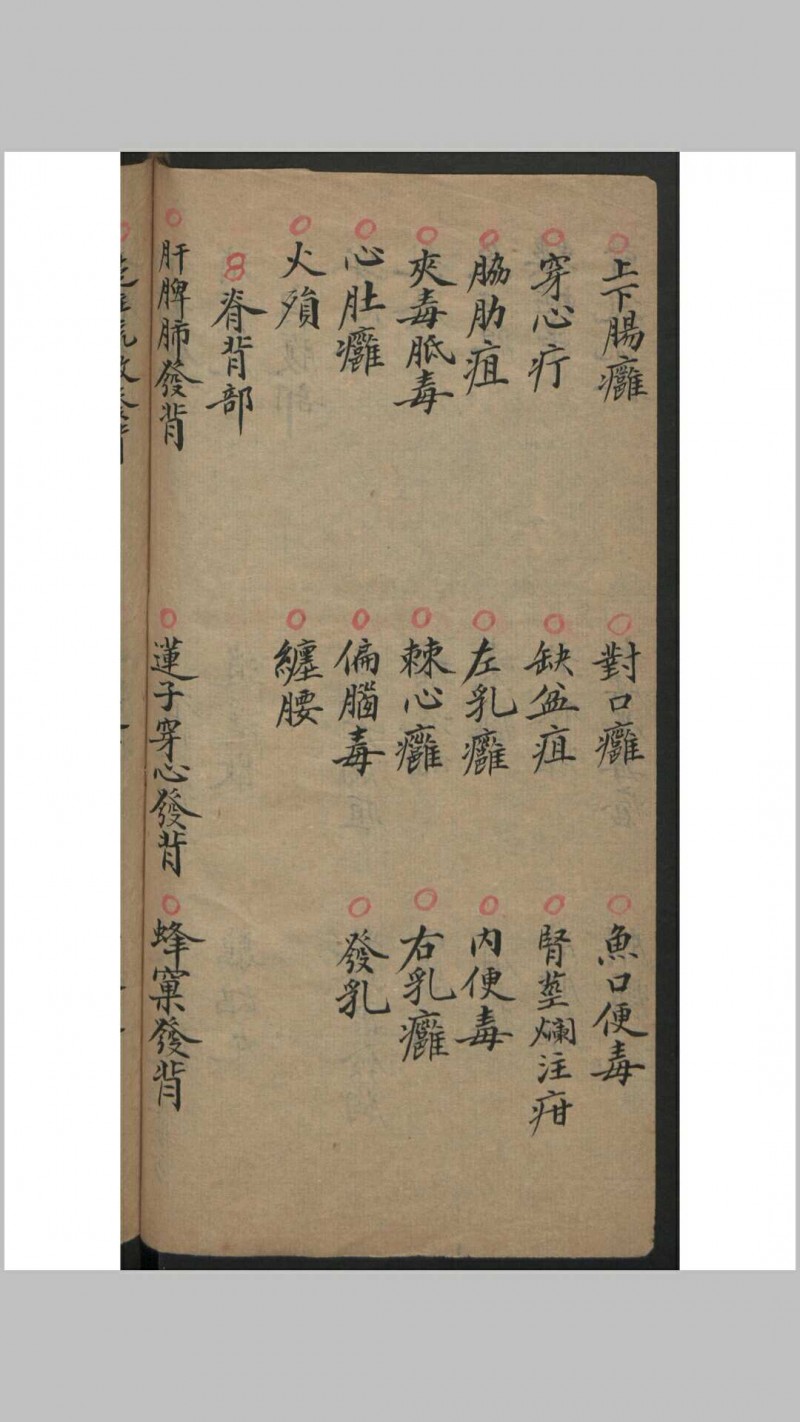 上下腸癰 對口癰 魚口便毒
穿心疔 缺盆疽 腎莖爛注疳
脇肋疽 左乳癰 內便毒
夾毒胝毒 棘心癰 右乳癰
心肚癰 偏腦毒 發乳
火殞 纏腰
脊背部
肝脾肺發背 蓮子穿心發背 蜂窠發背